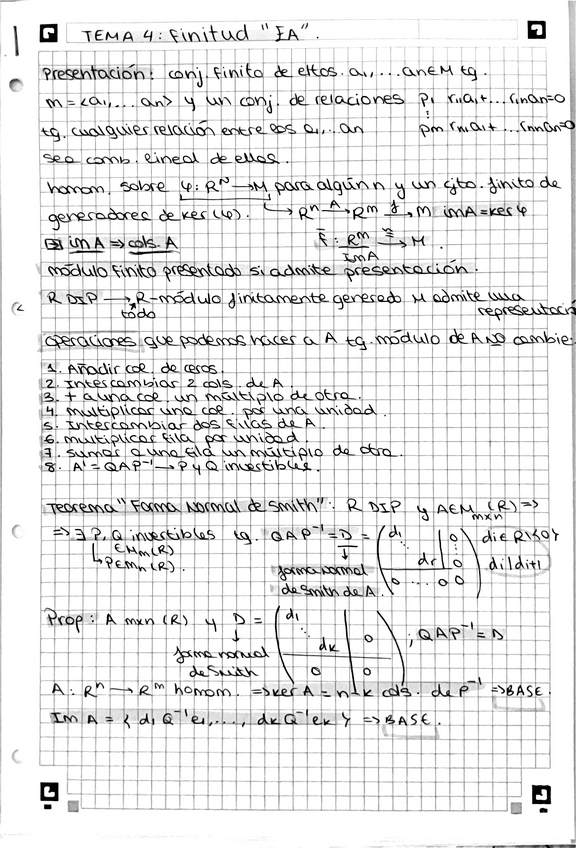 TEMA 4: finitud "EA".
Presentación: conj. finito de eltos. a₁,... an∈M tg.
m = <a₁,... an> y un conj. de relaciones p₁ r₁₁a₁+...r₁nan=0
tg. cualquier relación entre los a₁,...an ⋮ pm rm₁a₁+...rmnan=0
sea comb. lineal de ellas.
homom. sobre φ: Rᴺ → M para algún n y un cjto. finito de
generadores de ker(φ). ↳ Rⁿ -A→ Rᵐ -f→ M imA = ker φ
im A ⇒ cols. A f̄ : Rᵐ/ImA ≅→ M.
módulo finito presentado si admite presentación.
R DIP → R-módulo finitamente generado M admite una
todo representaci
operaciones que podemos hacer a A tg. módulo de A NO cambie:
1. Añadir col. de ceros.
2. Intercambiar 2 cols. de A.
3. + a una col. un múltiplo de otra.
4. multiplicar una col. por una unidad.
5. Intercambiar dos filas de A.
6. multiplicar fila por unidad.
7. sumar a una fila un múltiplo de otra.
8. A' = QAP⁻¹ → P y Q invertibles.
Teorema "Forma Normal de Smith": R DIP y A∈Mmxn(R) =>
=> ∃ P, Q invertibles tg. QAP⁻¹ = D = ( d₁ ⋱ dr | 0 ⋮ 0 ; 0 ... 0 0 ) di∈R\{0}
∈Mm(R) di|di+1
P∈Mn(R). forma normal
de Smith de A.
Prop: A mxn (R) y D = ( d₁ ⋱ dk | 0 ; 0 | 0 ) ; QAP⁻¹ = D
forma normal
de Smith
A: Rⁿ → Rᵐ homom. => ker A = n-k cols. de P⁻¹ => BASE.
Im A = { d₁ Q⁻¹e₁,..., dk Q⁻¹ek } => BASE.